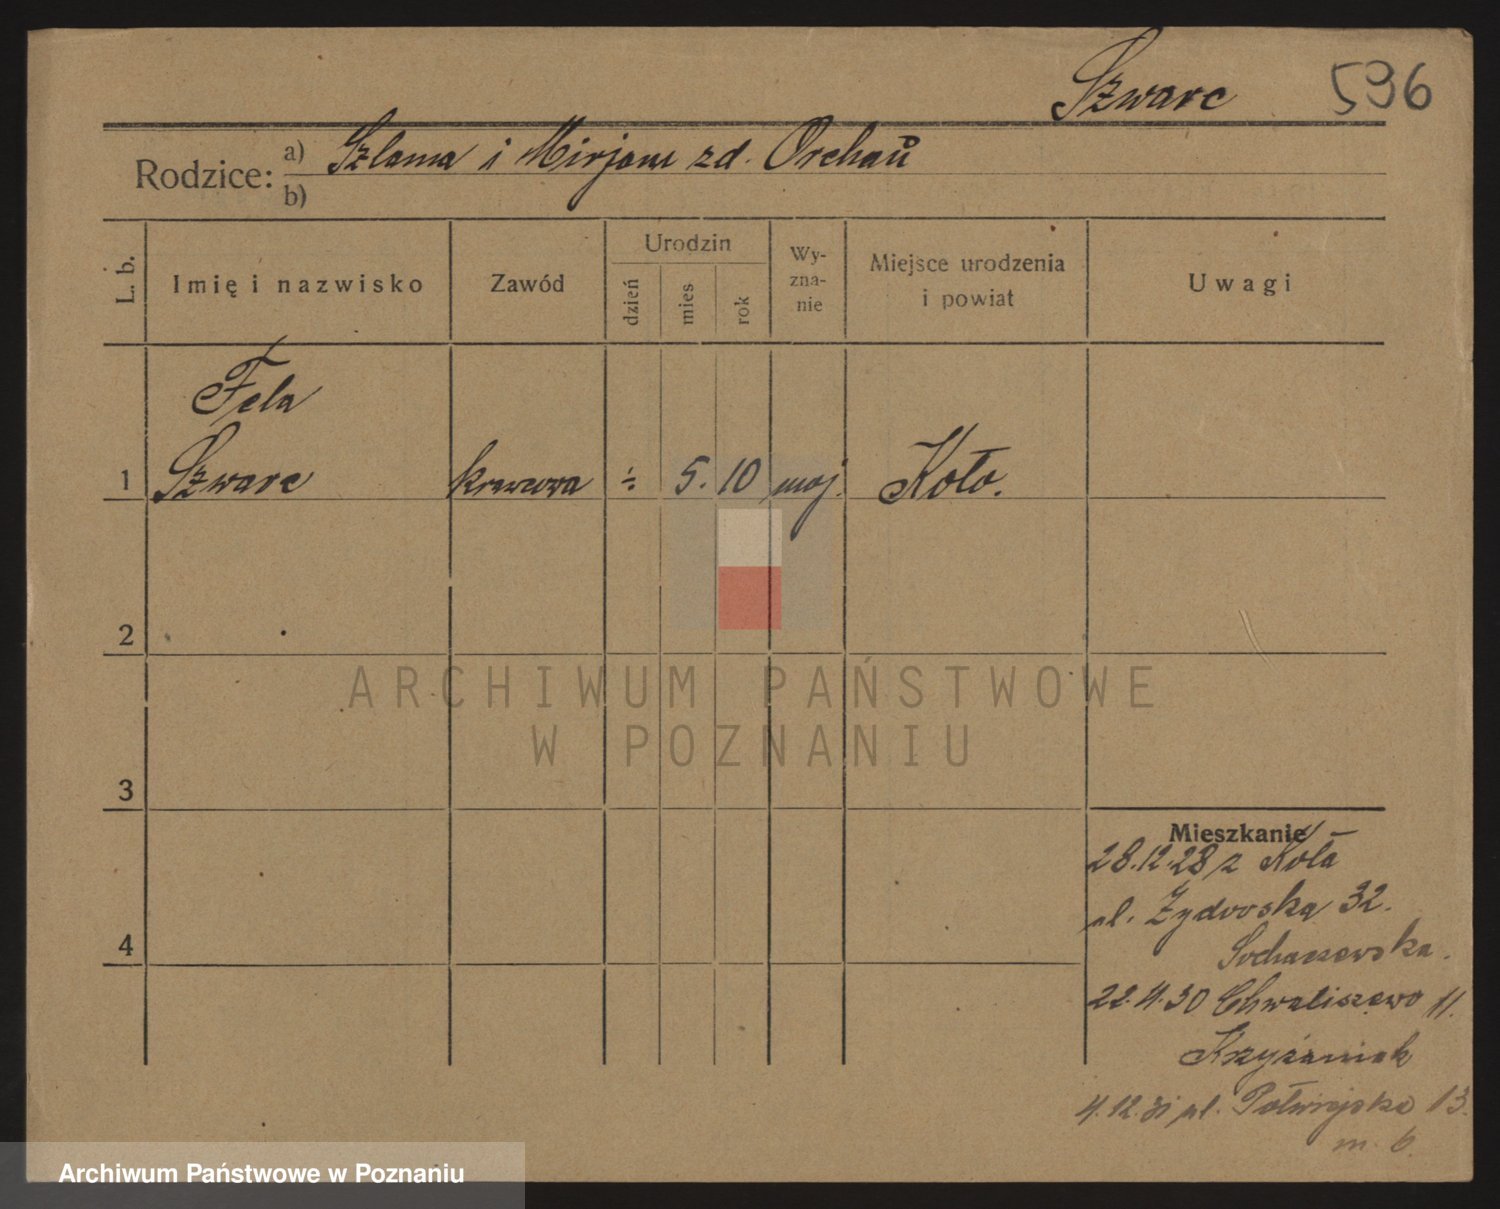 Szwarc 596
Rodzice: a) Szlama i Mirjam zd. Orchań
b)
L. b.
Imię i nazwisko
Zawód
Urodzin
dzień mies rok
Wy-
zna-
nie
Miejsce urodzenia
i powiat
Uwagi
Fela
1 Szwarc krawcowa ÷ 5. 10 moj. Koło.
2
3
4
Mieszkanie
28.12.28 z Koła
ul. Żydowska 32.
Sochaczewska.
22.4.30 Chwaliszewo 11.
Krzyżaniak
4.12.31 ul. Półwiejska 13.
m. 6.
ARCHIWUM PAŃSTWOWE
W POZNANIU
Archiwum Państwowe w Poznaniu